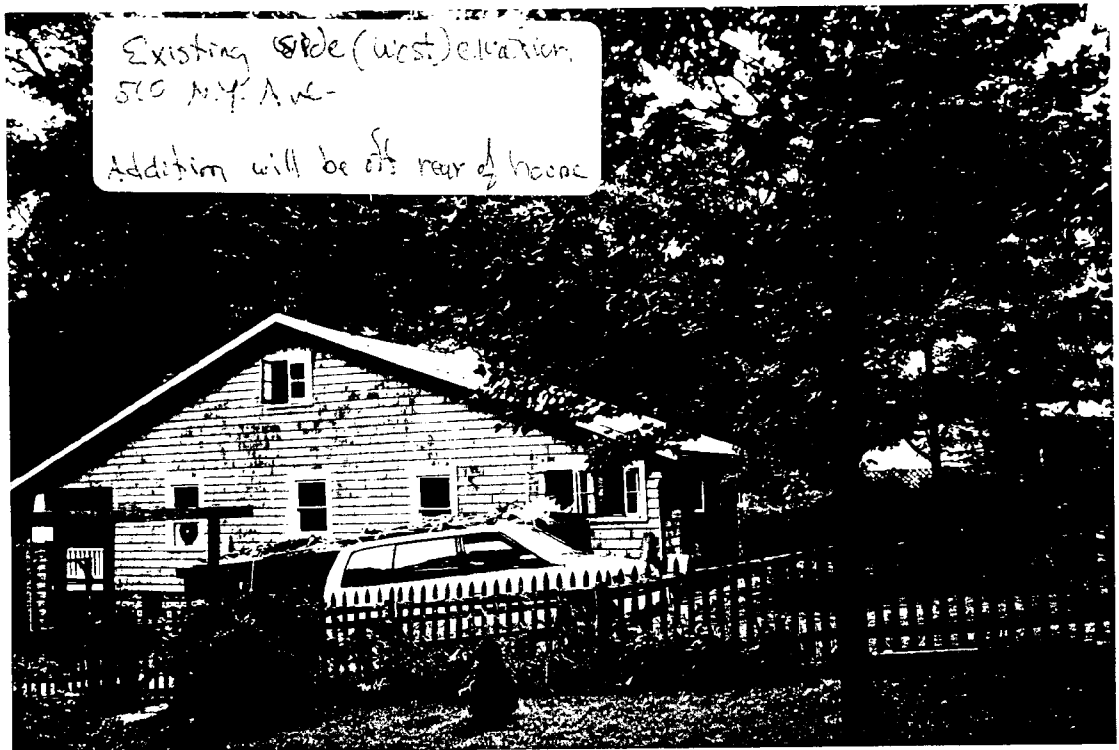 Existing side (west) elevation
510 N.Y. Ave-
Addition will be off rear of house